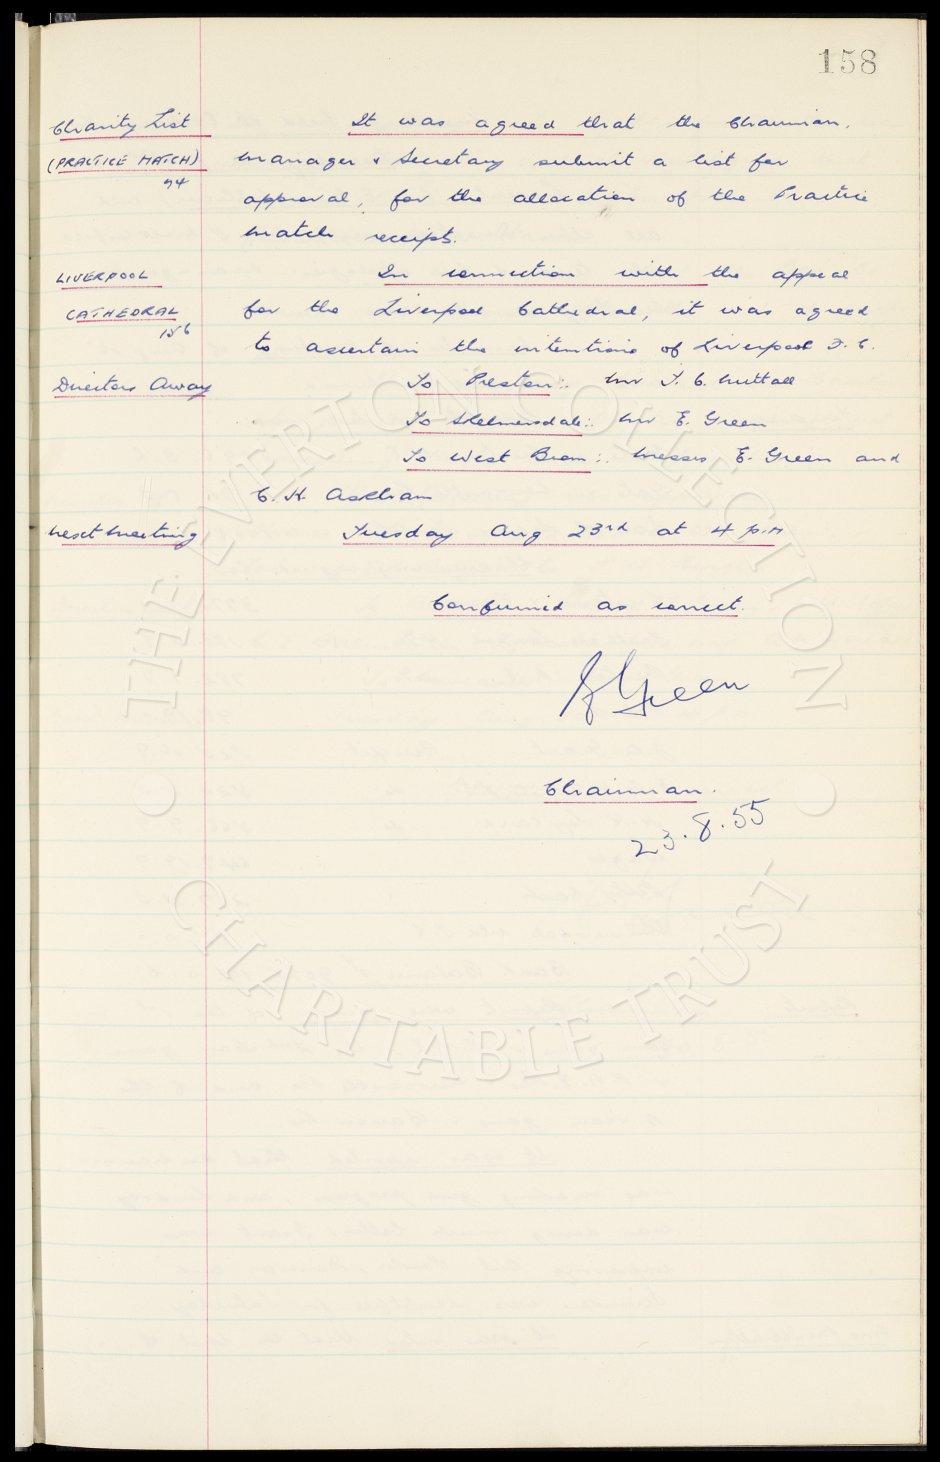 158
Charity List
It was agreed that the Chairman,
(PRACTICE MATCH)
Manager & Secretary submit a list for
94
approval, for the allocation of the Practice
Match receipts.
LIVERPOOL
In connection with the appeal
CATHEDRAL
for the Liverpool Cathedral, it was agreed
156
to ascertain the intentions of Liverpool F.C.
Directors Away
To Preston:. Mr T. C. Nuttall
To Skelmersdale:. Mr E. Green
To West Brom:. Messrs E. Green and
C. H. Askham
Next Meeting
Tuesday Aug 23rd at 4 p.m
Confirmed as correct.
E Green
Chairman.
23.8.55
THE EVERTON COLLECTION
CHARITABLE TRUST